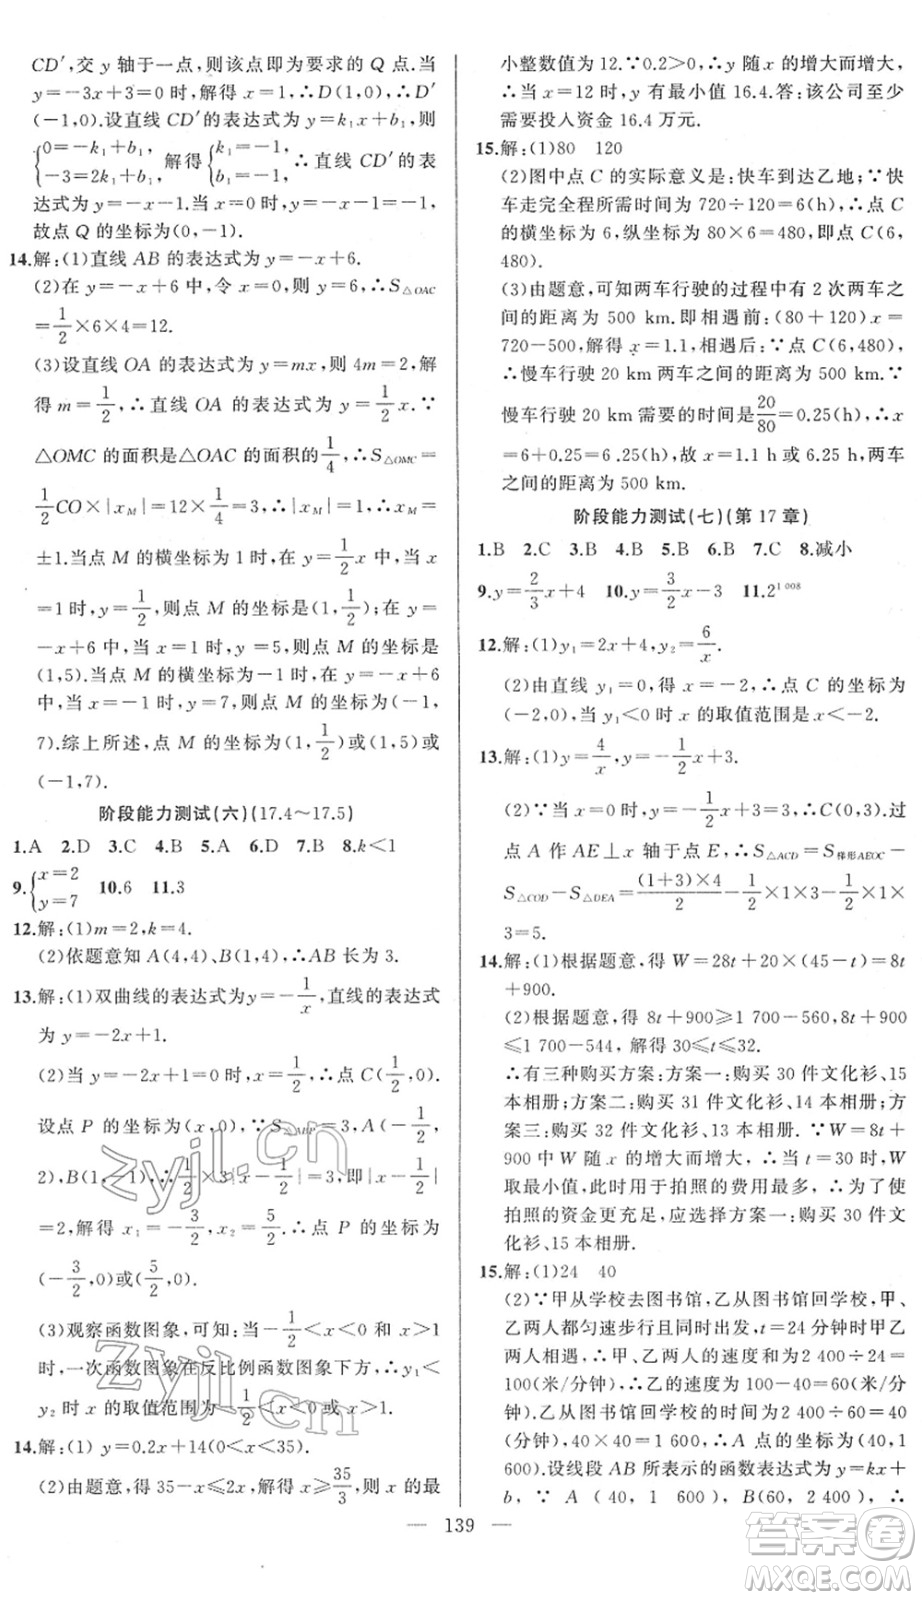 CD′,交 y 轴于一点,则该点即为要求的 Q 点.当
y=-3x+3=0 时,解得 x=1,∴D(1,0),∴D′
(-1,0).设直线 CD′的表达式为 y=k₁x+b₁,则
{0=-k₁+b₁, -3=2k₁+b₁, 解得{k₁=-1, b₁=-1, ∴直线 CD′的表
达式为 y=-x-1.当 x=0 时,y=-x-1=-1,
故点 Q 的坐标为(0,-1).
14.解:(1)直线 AB 的表达式为 y=-x+6.
(2)在 y=-x+6 中,令 x=0,则 y=6,∴S△OAC
=1/2×6×4=12.
(3)设直线 OA 的表达式为 y=mx,则 4m=2,解
得 m=1/2,∴直线 OA 的表达式为 y=1/2x.∵
△OMC 的面积是△OAC 的面积的1/4,∴S△OMC=
1/2CO×|x_M|=12×1/4=3,∴|x_M|=1,∴x_M=
±1.当点 M 的横坐标为 1 时,在 y=1/2x 中,当 x
=1 时,y=1/2,则点 M 的坐标是(1,1/2);在 y=
-x+6 中,当 x=1 时,y=5,则点 M 的坐标是
(1,5).当点 M 的横坐标为-1 时,在 y=-x+6
中,当 x=-1 时,y=7,则点 M 的坐标为(-1,
7).综上所述,点 M 的坐标为(1,1/2)或(1,5)或
(-1,7).
阶段能力测试(六)(17.4～17.5)
1.A 2.D 3.C 4.B 5.A 6.D 7.B 8.k<1
9.{x=2 y=7 10.6 11.3
12.解:(1)m=2,k=4.
(2)依题意知 A(4,4),B(1,4),∴AB 长为 3.
13.解:(1)双曲线的表达式为 y=-1/x,直线的表达式
为 y=-2x+1.
(2)当 y=-2x+1=0 时,x=1/2,∴点 C(1/2,0).
设点 P 的坐标为(x,0),∵S△ABP=3,A(-1/2,
2),B(1,-1),∴1/2×3|x-1/2|=3,即|x-1/2|
=2,解得 x₁=-3/2,x₂=5/2.∴点 P 的坐标为
(-3/2,0)或(5/2,0).
(3)观察函数图象,可知:当-1/2<x<0 和 x>1
时,一次函数图象在反比例函数图象下方,∴y₁<
y₂ 时 x 的取值范围为-1/2<x<0 或 x>1.
14.解:(1) y=0.2x+14(0<x<35).
(2)由题意,得 35-x≤2x,解得 x≥35/3,则 x 的最
小整数值为 12.∵0.2>0,∴y 随 x 的增大而增大,
∴当 x=12 时,y 有最小值 16.4.答:该公司至少
需要投入资金 16.4 万元.
15.解:(1)80 120
(2)图中点 C 的实际意义是:快车到达乙地;∵快
车走完全程所需时间为 720÷120=6(h),∴点 C
的横坐标为 6,纵坐标为 80×6=480,即点 C(6,
480).
(3)由题意,可知两车行驶的过程中有 2 次两车之
间的距离为 500 km.即相遇前:(80+120)x=
720-500,解得 x=1.1,相遇后:∵点 C(6,480),
∴慢车行驶 20 km 两车之间的距离为 500 km.∵
慢车行驶 20 km 需要的时间是20/80=0.25(h),∴x
=6+0.25=6.25(h),故 x=1.1 h 或 6.25 h,两车
之间的距离为 500 km.
阶段能力测试(七)(第 17 章)
1.B 2.C 3.B 4.B 5.B 6.B 7.C 8.减小
9.y=2/3x+4 10.y=3/2x-3 11.2^1 008
12.解:(1)y₁=2x+4,y₂=6/x.
(2)由直线 y₁=0,得 x=-2,∴点 C 的坐标为
(-2,0),当 y₁<0 时 x 的取值范围是 x<-2.
13.解:(1)y=4/x,y=-1/2x+3.
(2)∵当 x=0 时,y=-1/2x+3=3,∴C(0,3).过
点 A 作 AE⊥x 轴于点 E,∴S△ACD=S梯形AEOC-
S△COD-S△DEA=(1+3)×4/2-1/2×1×3-1/2×1×
3=5.
14.解:(1)根据题意,得 W=28t+20×(45-t)=8t
+900.
(2)根据题意,得 8t+900≥1 700-560,8t+900
≤1 700-544,解得 30≤t≤32.
∴有三种购买方案:方案一:购买 30 件文化衫、15
本相册;方案二:购买 31 件文化衫、14 本相册;方案
三:购买 32 件文化衫、13 本相册.∵W=8t+
900 中 W 随 x 的增大而增大,∴当 t=30 时,W
取最小值,此时用于拍照的费用最多,∴为了使
拍照的资金更充足,应选择方案一:购买 30 件文
化衫、15 本相册.
15.解:(1)24 40
(2)∵甲从学校去图书馆,乙从图书馆回学校,甲、
乙两人都匀速步行且同时出发,t=24 分钟时甲乙
两人相遇,∴甲、乙两人的速度和为 2 400÷24=
100(米/分钟),∴乙的速度为 100-40=60(米/
分钟).乙从图书馆回学校的时间为 2 400÷60=40
(分钟),∵40×40=1 600,∴A 点的坐标为(40,1
600).设线段 AB 所表示的函数表达式为 y=kx+
b,∵A(40,1 600),B(60,2 400),∴
— 139 —
zyjl.cn
zyjl.cn
答案圈
MXQE.COM